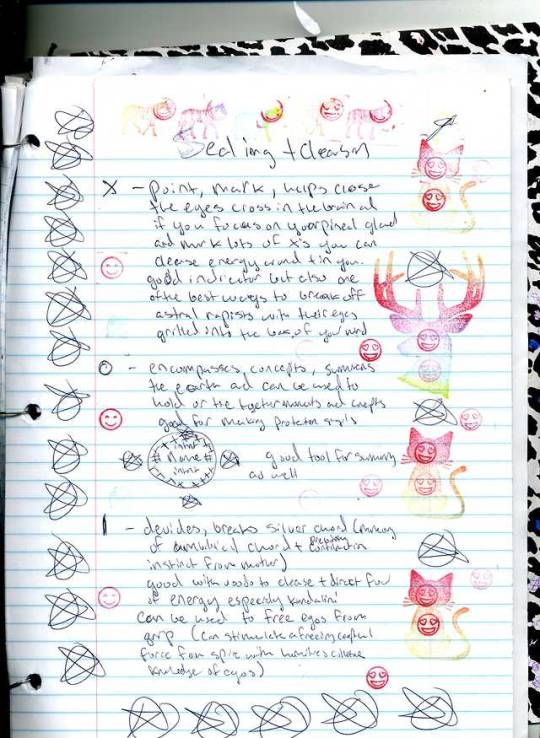 Sealing + Cleansin
X - Point, mark, helps close
the eyes cross in the brain al
if you focus on your pineal gland
and mark lots of x's you can
clease energy around + in you.
good indicator but also one
of the best ways to break off
astral rapists with their eyes
grilled into the back of your mind
O - encompasses concepts, summons
the earth and can be used to
hold or tie together moments and concepts
good for making protection sigils
intent
# Name #
intent
good tool for summoning
as well
| - devides, breaks silver chord (
of aumbilical chord +
instinct from mother)
good with woods to clease + direct flow
of energy especially kundalini
can be used to free egos from
grip (can stimulate a freeing
force from spine with humanities collective
knoledge of egos)